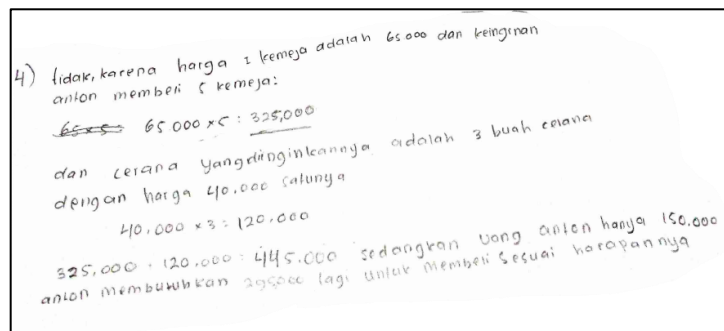 4) tidak, karena harga 1 kemeja adalah 65000 dan keinginan
anton membeli 5 kemeja:
65000 x 5 : 325,000
dan cerana yang diinginkannya adalah 3 buah celana
dengan harga 40.000 satunya
40.000 x 3 = 120.000
325.000 + 120.000 = 445.000 sedangkan uang anton hanya 150.000
anton membutuhkan 295000 lagi untuk membeli sesuai harapannya